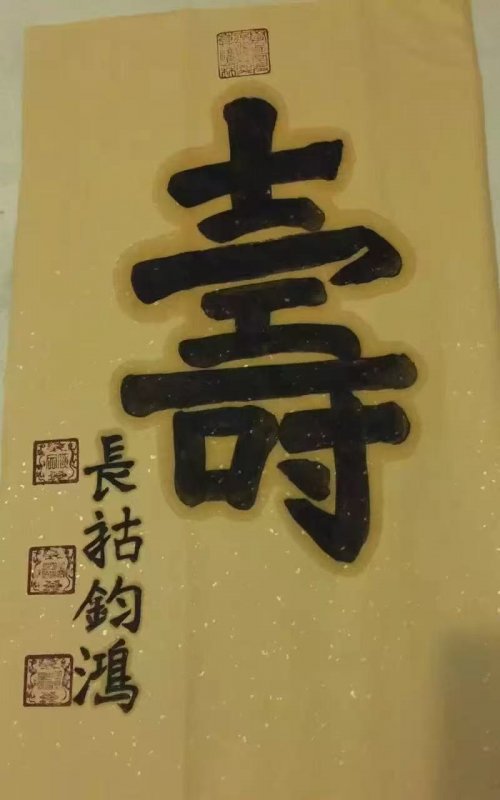 壽
長祜鈞鴻